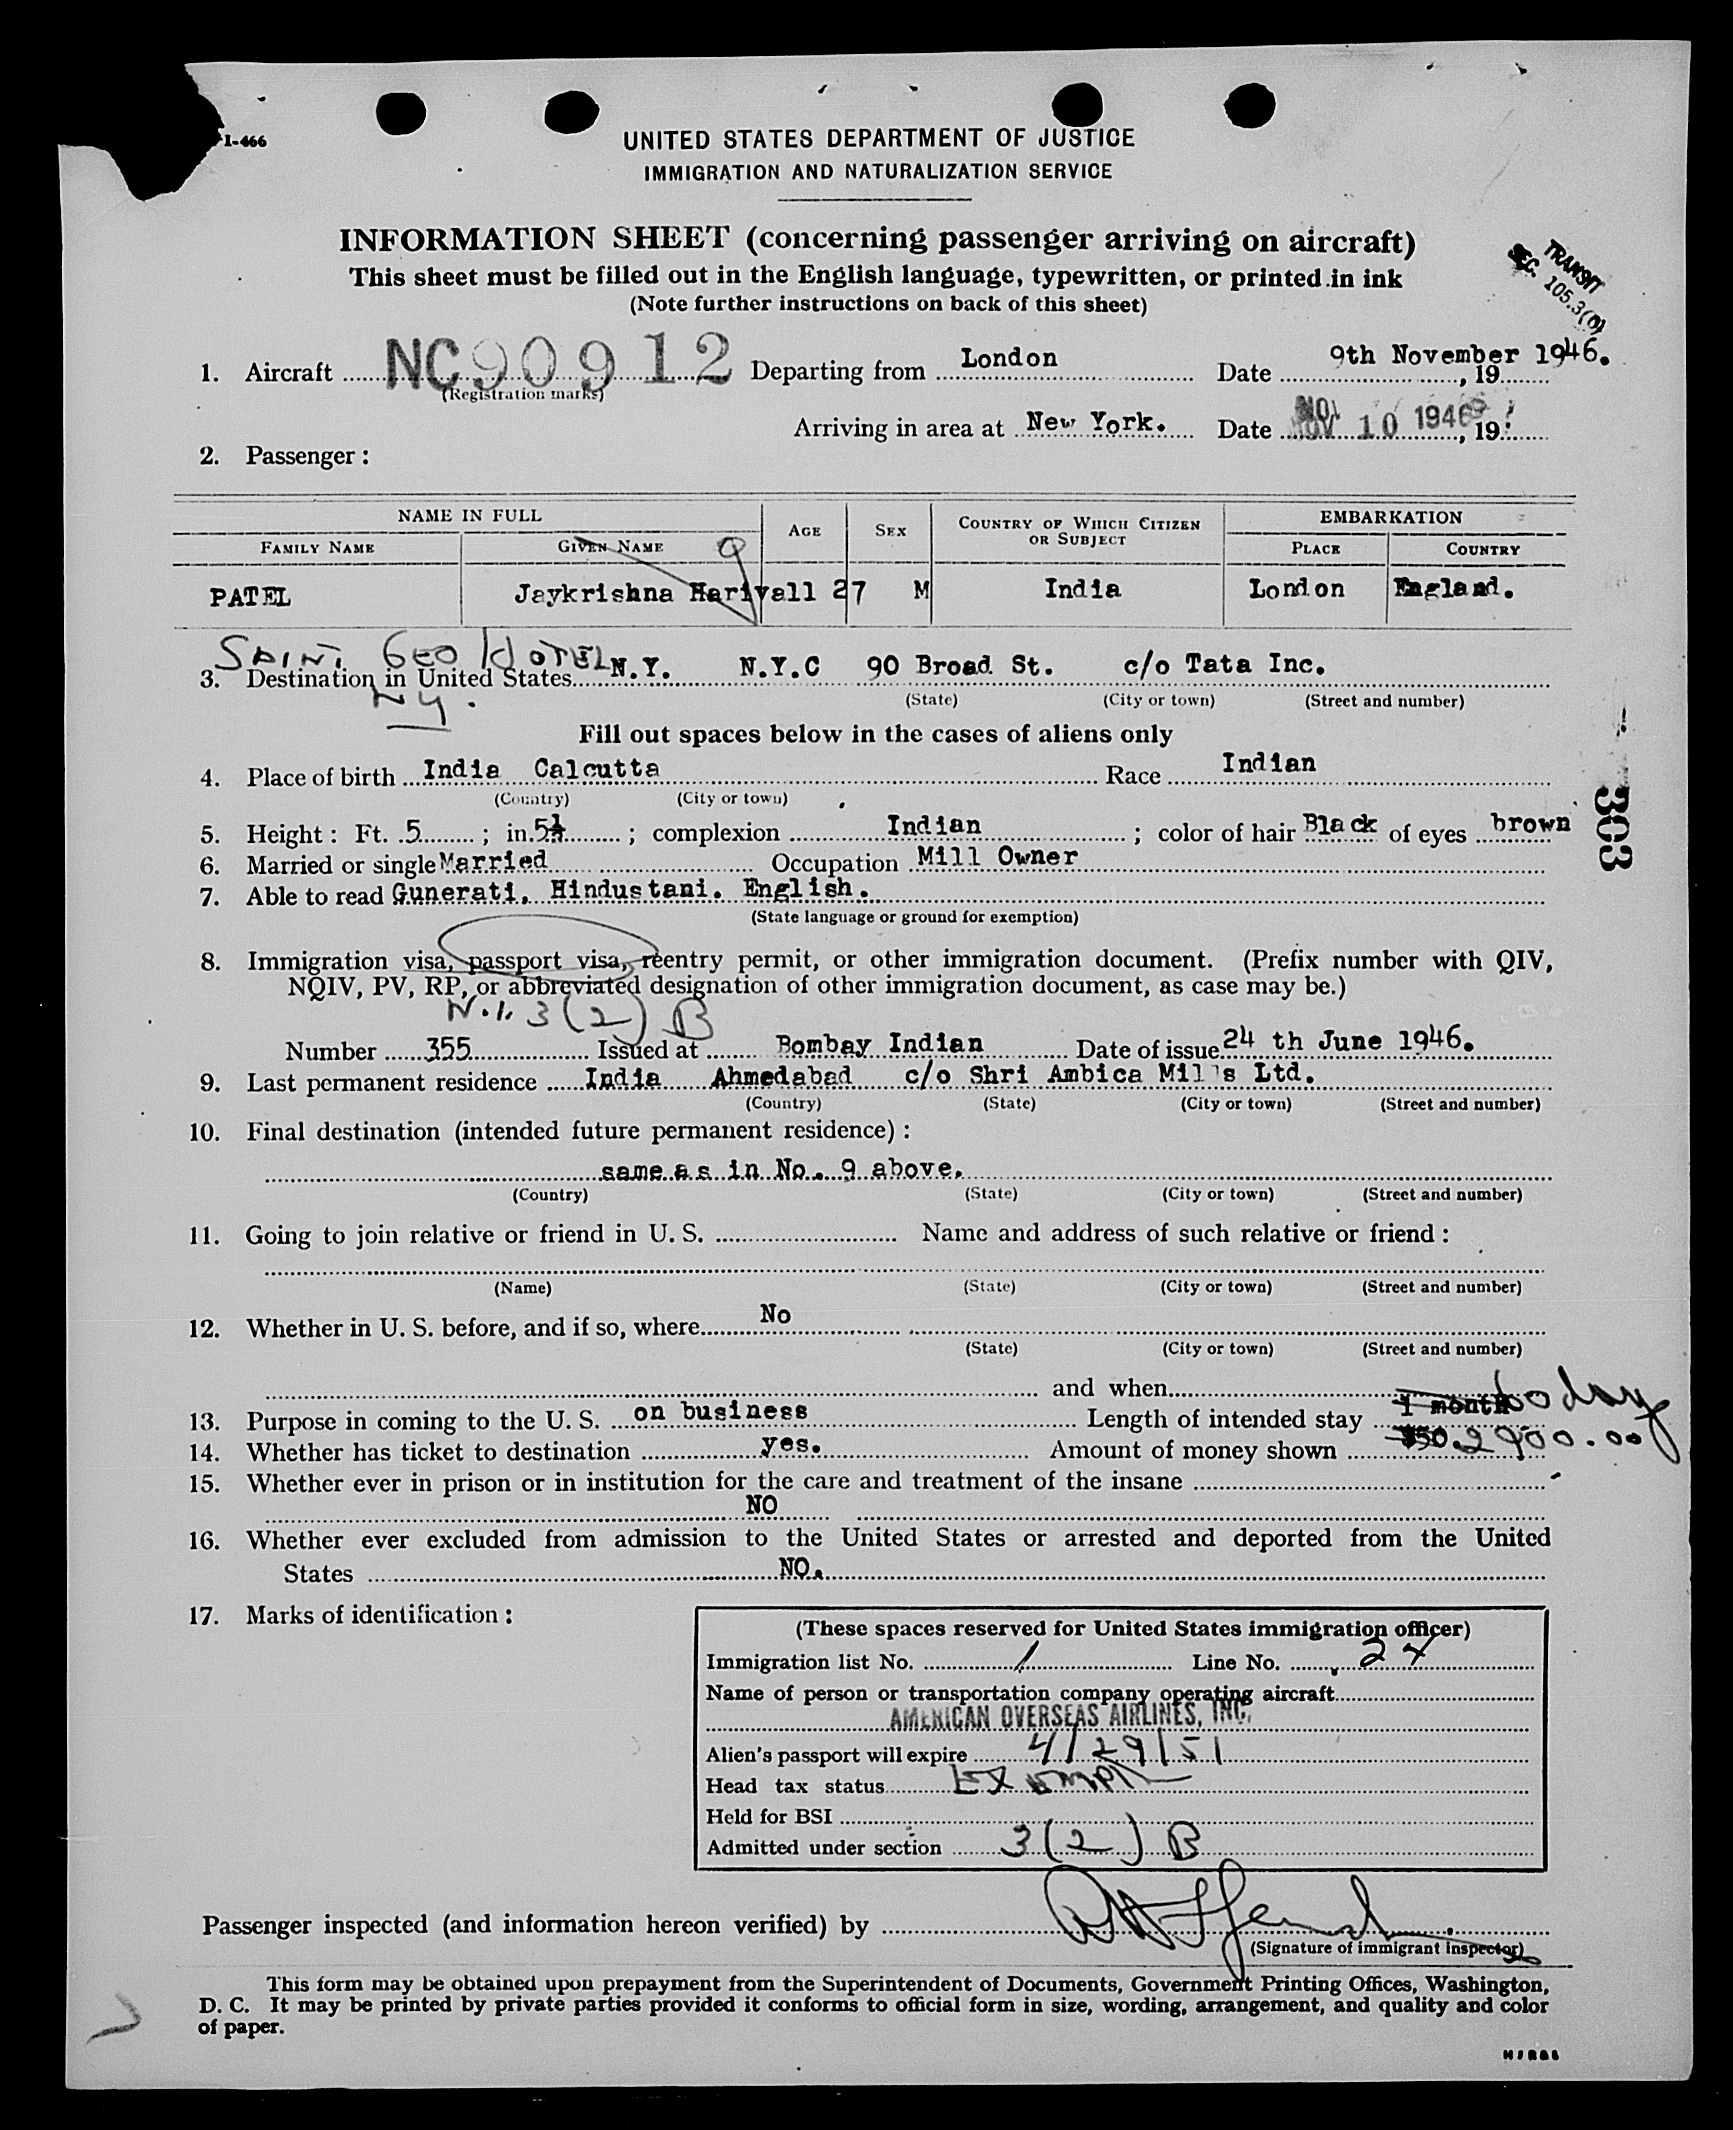 I-466
UNITED STATES DEPARTMENT OF JUSTICE
IMMIGRATION AND NATURALIZATION SERVICE
INFORMATION SHEET (concerning passenger arriving on aircraft)
This sheet must be filled out in the English language, typewritten, or printed in ink
(Note further instructions on back of this sheet)
TRANSIT
SEC. 105.3(0)
1. Aircraft NC90912 Departing from London Date 9th November 1946. , 19
(Registration marks)
Arriving in area at New York. Date NOV 10 1946 , 19
2. Passenger:
NAME IN FULL AGE SEX COUNTRY OF WHICH CITIZEN OR SUBJECT EMBARKATION
FAMILY NAME GIVEN NAME PLACE COUNTRY
PATEL Jaykrishna Harivall 27 M India London England.
SAINT GEO HOTEL
3. Destination in United States N.Y. N.Y.C 90 Broad St. c/o Tata Inc.
NY.
(State) (City or town) (Street and number)
Fill out spaces below in the cases of aliens only
4. Place of birth India Calcutta Race Indian
(Country) (City or town)
5. Height: Ft. 5 ; in. 5½ ; complexion Indian ; color of hair Black of eyes brown
303
6. Married or single Married Occupation Mill Owner
7. Able to read Gunerati. Hindustani. English.
(State language or ground for exemption)
8. Immigration visa, passport visa, reentry permit, or other immigration document. (Prefix number with QIV,
NQIV, PV, RP, or abbreviated designation of other immigration document, as case may be.)
3(2) B
Number 355 Issued at Bombay Indian Date of issue 24 th June 1946.
9. Last permanent residence India Ahmedabad c/o Shri Ambica Mills Ltd.
(Country) (State) (City or town) (Street and number)
10. Final destination (intended future permanent residence):
same as in No. 9 above.
(Country) (State) (City or town) (Street and number)
11. Going to join relative or friend in U. S. Name and address of such relative or friend:
(Name) (State) (City or town) (Street and number)
12. Whether in U. S. before, and if so, where No
(State) (City or town) (Street and number)
and when
13. Purpose in coming to the U. S. on business Length of intended stay 1 month 60 days
14. Whether has ticket to destination yes. Amount of money shown $50. 2900.00
15. Whether ever in prison or in institution for the care and treatment of the insane
NO
16. Whether ever excluded from admission to the United States or arrested and deported from the United
States NO.
17. Marks of identification:
(These spaces reserved for United States immigration officer)
Immigration list No. 1 Line No. 24
Name of person or transportation company operating aircraft
AMERICAN OVERSEAS AIRLINES, INC.
Alien's passport will expire 4/29/51
Head tax status Exempt
Held for BSI
Admitted under section 3(2) B
Passenger inspected (and information hereon verified) by
(Signature of immigrant inspector)
This form may be obtained upon prepayment from the Superintendent of Documents, Government Printing Offices, Washington,
D. C. It may be printed by private parties provided it conforms to official form in size, wording, arrangement, and quality and color
of paper.